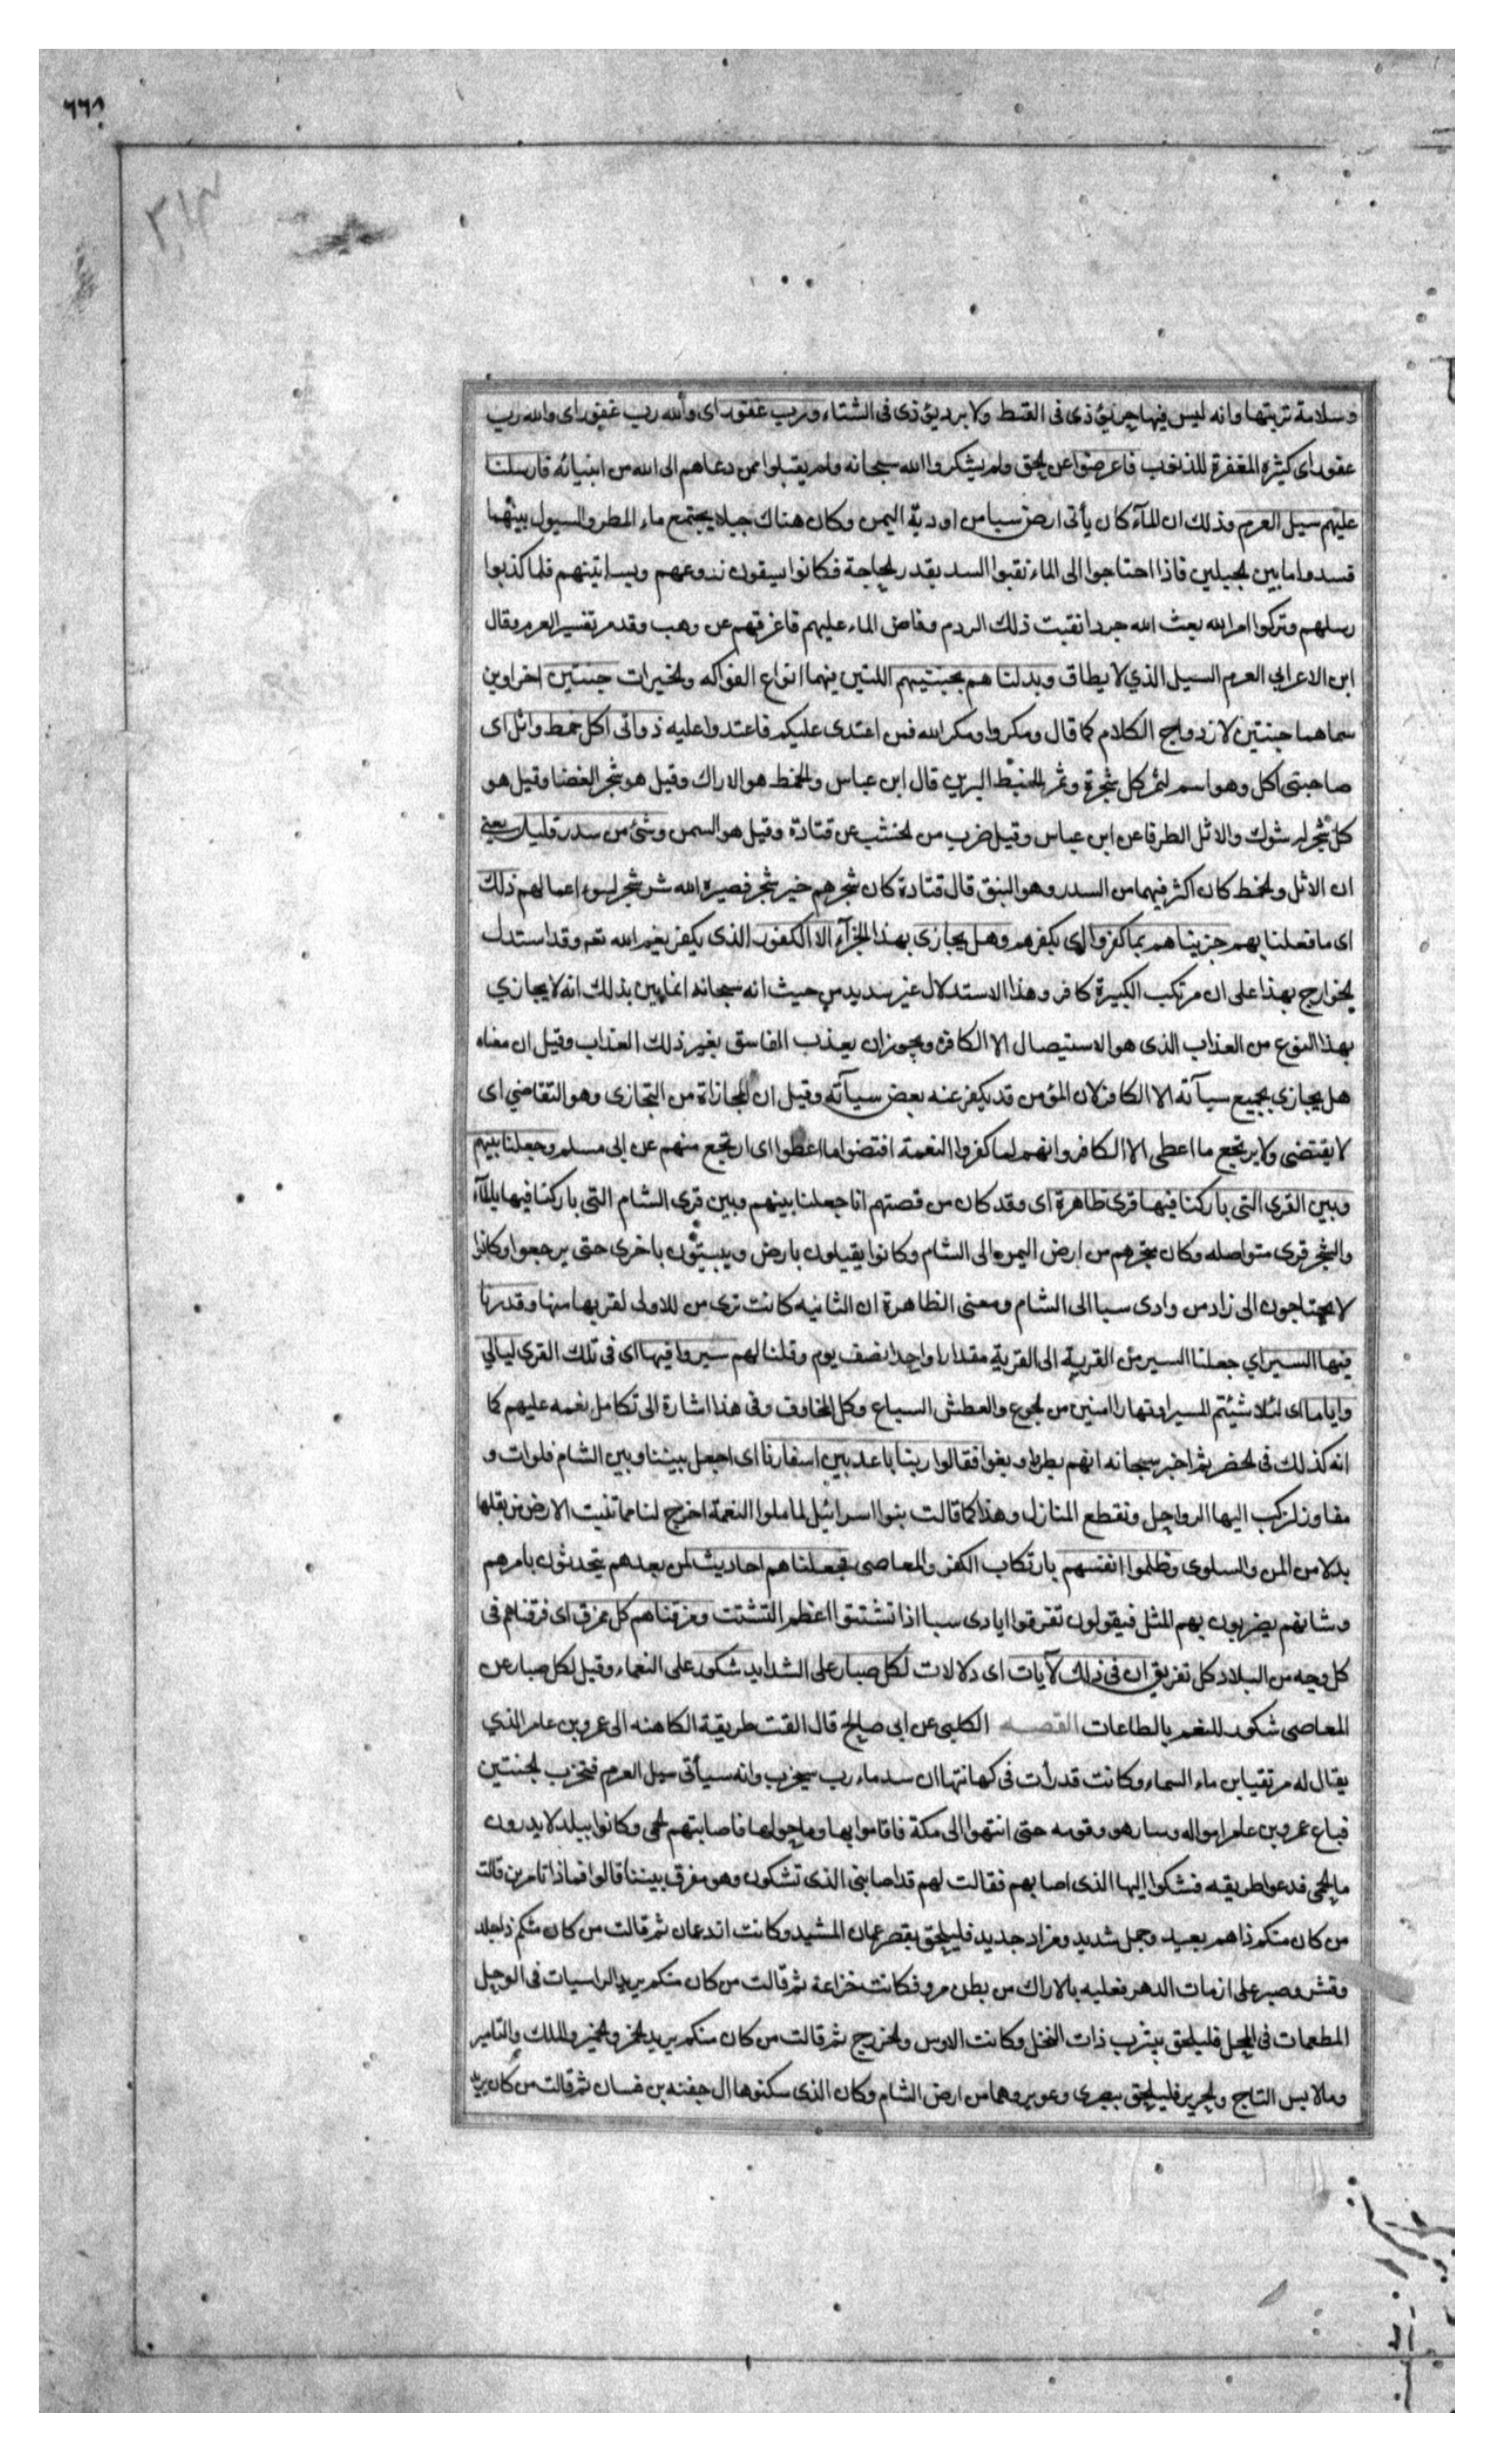 ٦٦٨
٣١٣
وسلامة تربتها وانه ليس فيها حر يؤذى فى القيظ ولا برد يؤذى فى الشتاء ورب غفور اى والله رب غفور اى والله رب
غفور اى كثير المغفرة للذنوب فاعرضوا عن الحق ولم يشكروا الله سبحانه ولم يقبلوا ممن دعاهم الى الله من انبيائه فارسلنا
عليهم سيل العرم وذلك ان المآء كان يأتى ارض سبا من اودية اليمن وكان هناك جبلا يجتمع ماء المطر والسيول بينهما
فسدوا ما بين الجبلين فاذا احتاجوا الى الماء نقبوا السد بقدر الحاجة فكانوا يسقون زروعهم وبساتينهم فلما كذبوا
رسلهم وتركوا امر الله بعث الله جردا نقبت ذلك الردم وفاض الماء عليهم فاغرقهم عن وهب وقد مر تفسير العرم وقال
ابن الاعرابي العرم السيل الذي لا يطاق وبدلنا هم بجنتيهم اللتين فيهما انواع الفواكه والخيرات جنتين اخراوين
سماهما جنتين لازدواج الكلام كما قال ومكروا ومكر الله فمن اعتدى عليكم فاعتدوا عليه ذواتى اكل خمط واثل اى
صاحبتى اكل وهو اسم لثمر كل شجرة وثمر الخمط البرير قال ابن عباس والخمط هو الاراك وقيل هو شجر الغضا وقيل هو
كل شجر له شوك والاثل الطرفا عن ابن عباس وقيل ضرب من الخشب عن قتادة وقيل هو السمر وشئ من سدر قليل يعنى
ان الاثل والخمط كان اكثر فيهما من السدر وهو النبق قال قتادة كان شجرهم خير شجر فصيره الله شر شجر لسوء اعمالهم ذلك
اى ما فعلنا بهم جزيناهم بما كفروا اى بكفرهم وهل يجازى بهذا الجزآء الا الكفور الذى يكفر بنعم الله تعم وقد استدل
الخوارج بهذا على ان مرتكب الكبيرة كافر وهذا الاستدلال غير سديد من حيث انه سبحانه انما بين بذلك انه لا يجازي
بهذا النوع من العذاب الذى هو الاستيصال الا الكافر ويجوز ان يعذب الفاسق بغير ذلك العذاب وقيل ان معناه
هل يجازى بجميع سيآته الا الكافر لان المؤمن قد يكفر عنه بعض سيآته وقيل ان المجازاة من التجازى وهو التقاضي اى
لا يقتضى ولا يرتجع ما اعطى الا الكافر وانهم لما كفروا النعمة اقتضوا ما اعطوا اى ارتجع منهم عن ابى مسلم وجعلنا بينهم
وبين القرى التى باركنا فيها قرى ظاهرة اى وقد كان من قصتهم انا جعلنا بينهم وبين قرى الشام التى باركنا فيها بالمآء
والشجر قرى متواصله وكان متجرهم من ارض اليمن الى الشام وكانوا يقيلون بارض ويبيتون باخرى حتى يرجعوا وكانوا
لا يحتاجون الى زاد من وادى سبا الى الشام ومعنى الظاهرة ان الثانيه كانت ترى من للاولى لقربها منها وقدرنا
فيها السير اي جعلنا السير من القرية الى القرية مقدارا واحدا نصف يوم وقلنا لهم سيروا فيها اى فى تلك القرى ليالي
واياما اى ليلا شيئتم المسير او نهارا امنين من الجوع والعطش السباع وكل المخاوف وفى هذا اشارة الى تكامل نعمه عليهم كما
انه كذلك فى الحضر ثم اخبر سبحانه انهم بطروا وبغوا فقالوا ربنا باعد بين اسفارنا اى اجعل بيننا وبين الشام فلوات و
مفاوز لنركب اليها الرواحل ونقطع المنازل وهذا كما قالت بنوا اسرائيل لما ملوا النعمة اخرج لنا مما تنبت الارض من بقلها
بدلا من المن والسلوى وظلموا انفسهم بارتكاب الكفر والمعاصى فجعلناهم احاديث لمن بعدهم يتحدثون بامرهم
وشانهم يضربون بهم المثل فيقولون تفرقوا ايادى سبا اذا تشتتوا اعظم التشتت ومزقناهم كل ممزق اى فرقناهم فى
كل وجه من البلاد كل تفريق ان فى ذلك لآيات اى دلالات لكل صبار على الشدايد شكور على النعماء وقيل لكل صبار عن
المعاصى شكور للنعم بالطاعات القصـــه الكلبى عن ابى صالح قال القت طريقة الكاهنه الى عمرو بن عامر الذي
يقال له مزيقيا بن ماء السماء وكانت قد رأت فى كهانتها ان سد مارب سيخرب وانه سيأتى سيل العرم فيخرب الجنتين
فباع عمرو بن عامر امواله وسار هو وقومه حتى انتهوا الى مكة فاقاموا بها وما حولها فاصابتهم الحمى وكانوا ببلد لا يدرون
ما الحمى فدعوا طريقه فشكوا اليها الذى اصابهم فقالت لهم قد اصابنى الذى تشكون وهو مفرق بيننا قالوا فماذا تامرين قالت
من كان منكم ذاهم بعيد وجمل شديد ومزاد جديد فليلحق بقصر عمان المشيد وكانت ازد عمان ثم قالت من كان منكم ذا جلد
وقسر وصبر على ازمات الدهر فعليه بالاراك من بطن مر وفكانت خزاعة ثم قالت من كان منكم يريد الراسيات فى الوحل
المطعمات فى المحل فليلحق بيثرب ذات النخل وكانت الاوس والخزرج ثم قالت من كان منكم يريد الخمر والخمير والملك والتامير
وملابس التاج والحرير فليلحق ببصرى وعوير وهما من ارض الشام وكان الذى سكنوها ال جفنه بن غسان ثم قالت من كان يريد